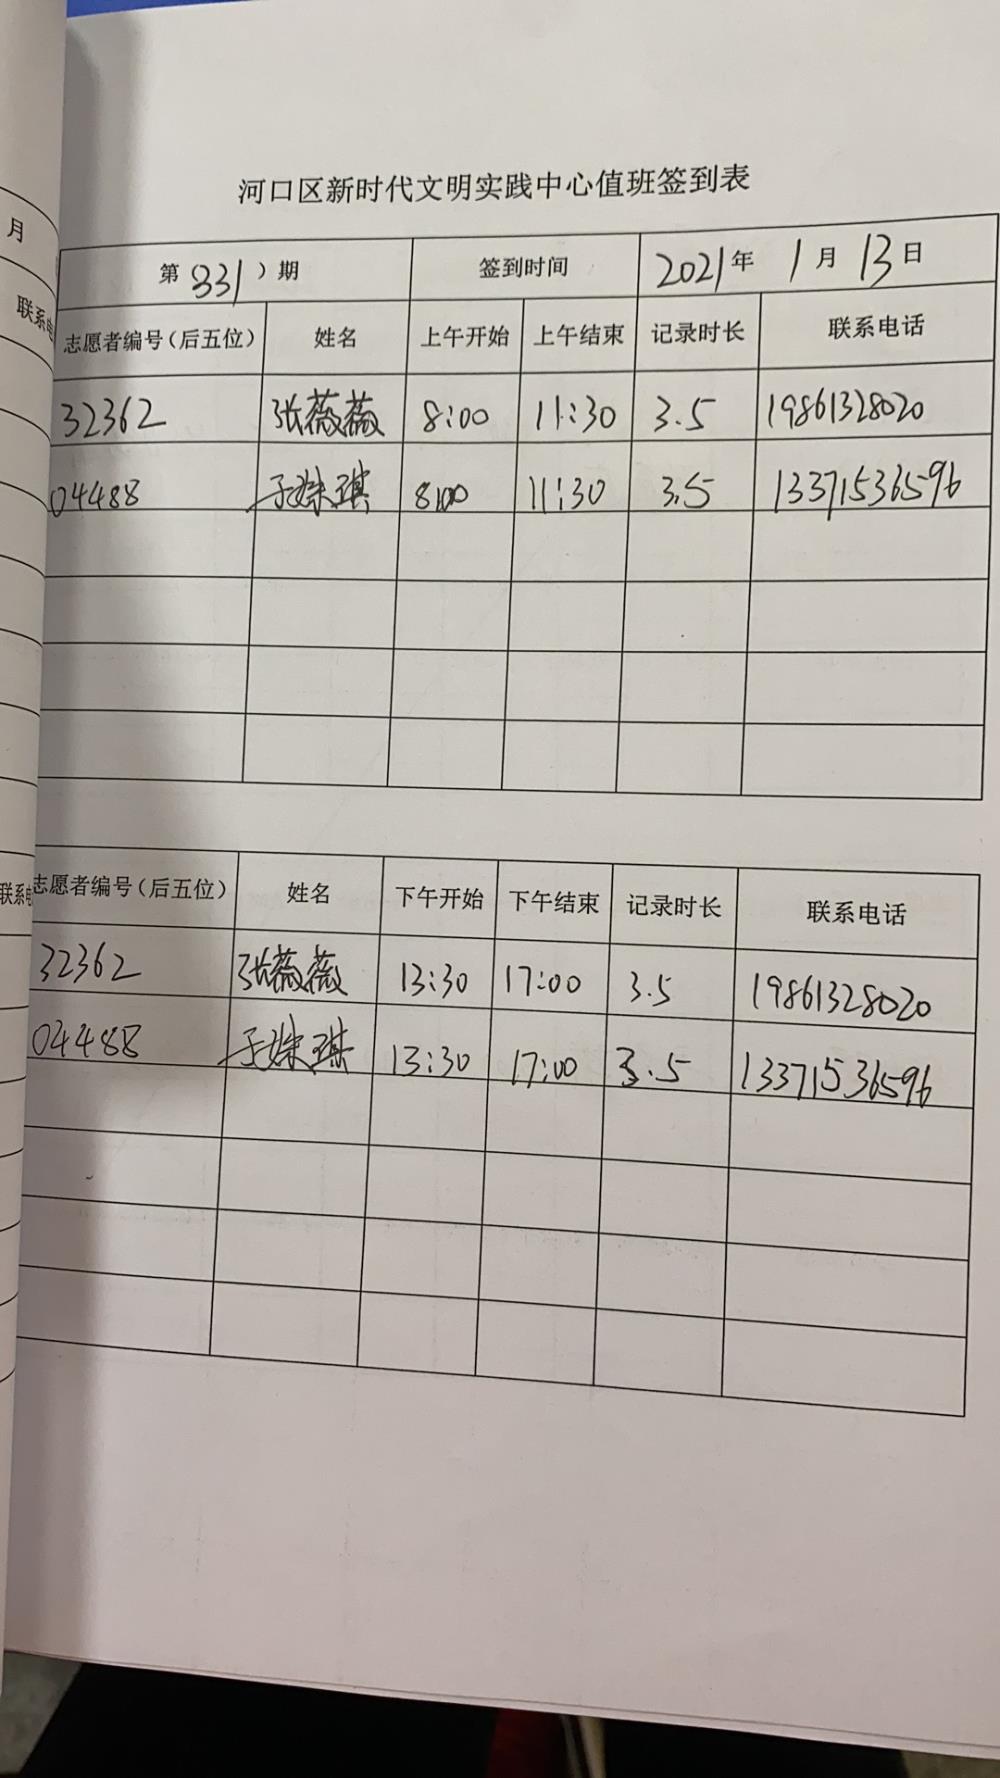 河口区新时代文明实践中心值班签到表
第 331 ）期 签到时间 2021年 1月 13日
志愿者编号（后五位） 姓名 上午开始 上午结束 记录时长 联系电话
32362 张薇薇 8:00 11:30 3.5 19861328020
04488 于姝琪 8:00 11:30 3.5 13371536596
志愿者编号（后五位） 姓名 下午开始 下午结束 记录时长 联系电话
32362 张薇薇 13:30 17:00 3.5 19861328020
04488 于姝琪 13:30 17:00 3.5 13371536596
月
联系电
联系电